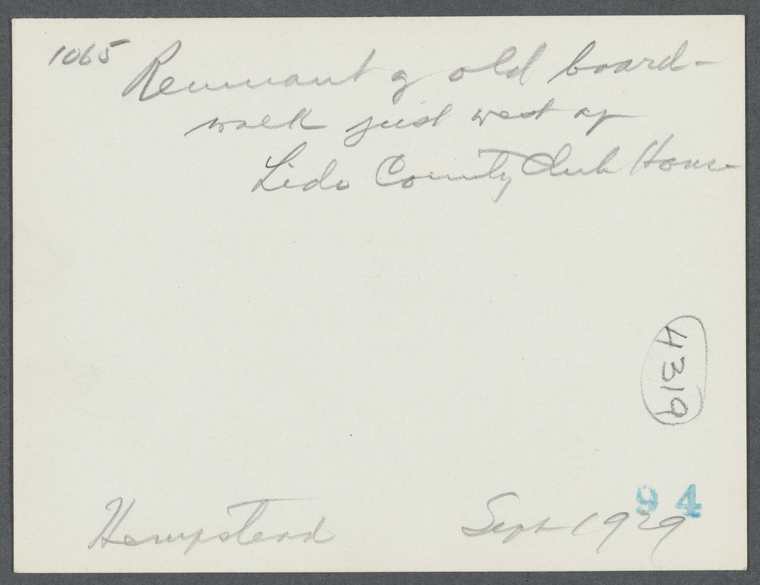 1065 Remnant of old board-
walk just west of
Lido County Club House
4319
94
Hempstead Sept 1929